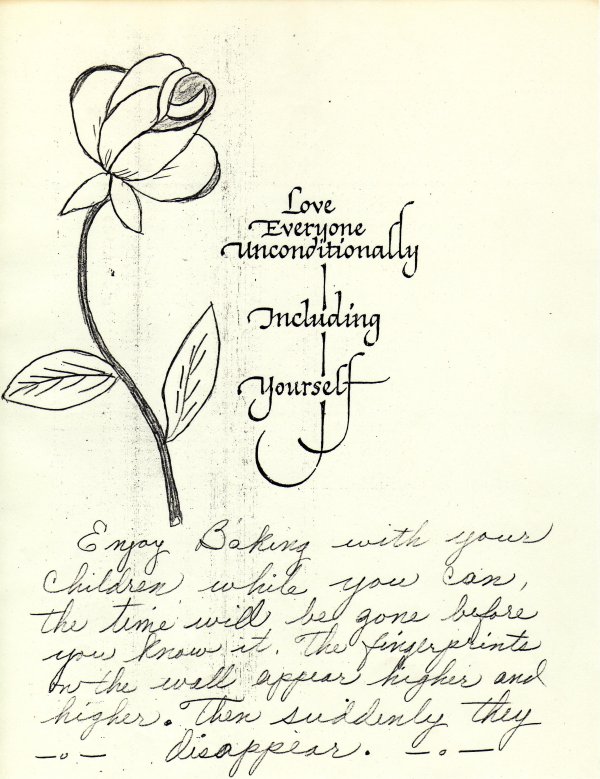 Love
Everyone
Unconditionally
Including
Yourself
Enjoy Baking with your
children while you can,
the time will be gone before
you know it. The fingerprints
on the wall appear higher and
higher. Then suddenly they
—o— disappear. —o—